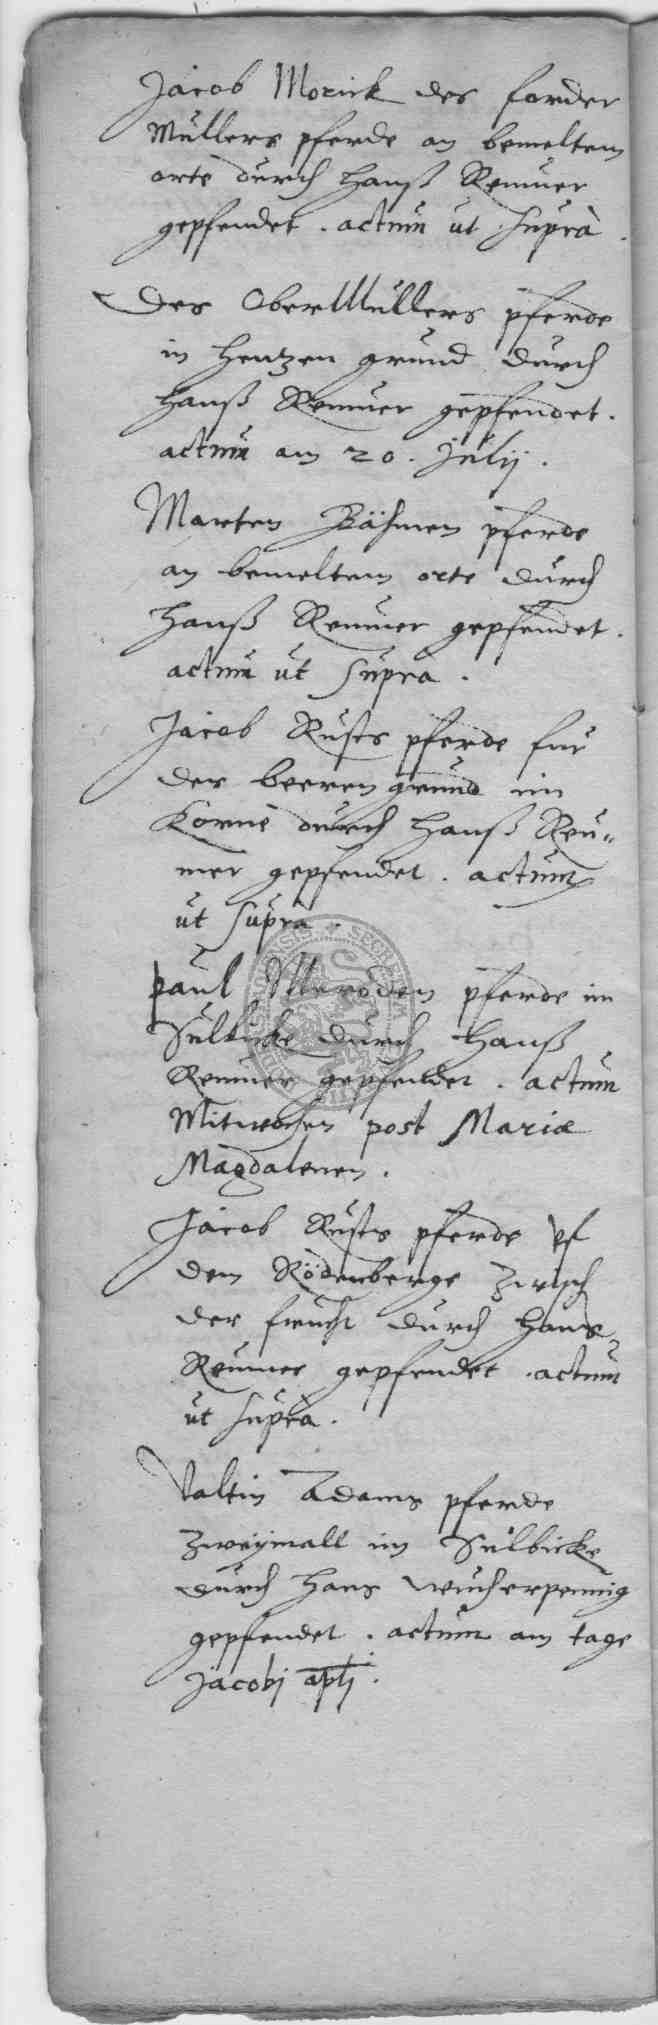 Jacob Morick des forder
Müllers pferde an bemeltem
orte durch Hanß Remmer
gepfendet. actum ut suprà.
Des Ober Müllers pferde
in Hentzen grund durch
Hanß Remmer gepfendet.
actum am 20. Julij.
Marten Bähmen pferde
an bemeltem orte durch
Hanß Remmer gepfendet.
actum ut suprà.
Jacob Rusts pferde fur
der beeren grund im
Korne durch Hanß Rem=
mer gepfendet. actum
ut suprà.
Paul Meroden pferde im
Sülbicke durch Hanß
Remmer gepfendet. actum
Mitwochen post Mariæ
Magdalenen.
Jacob Rusts pferde vf
dem Rödenberge zwisch
der frucht durch Hans
Remmer gepfendet. actum
ut suprà.
Valtin Adams pferde
zweymall im Sülbicke
durch Hans Wucherpennig
gepfendet. actum am tage
Jacobj aplj.